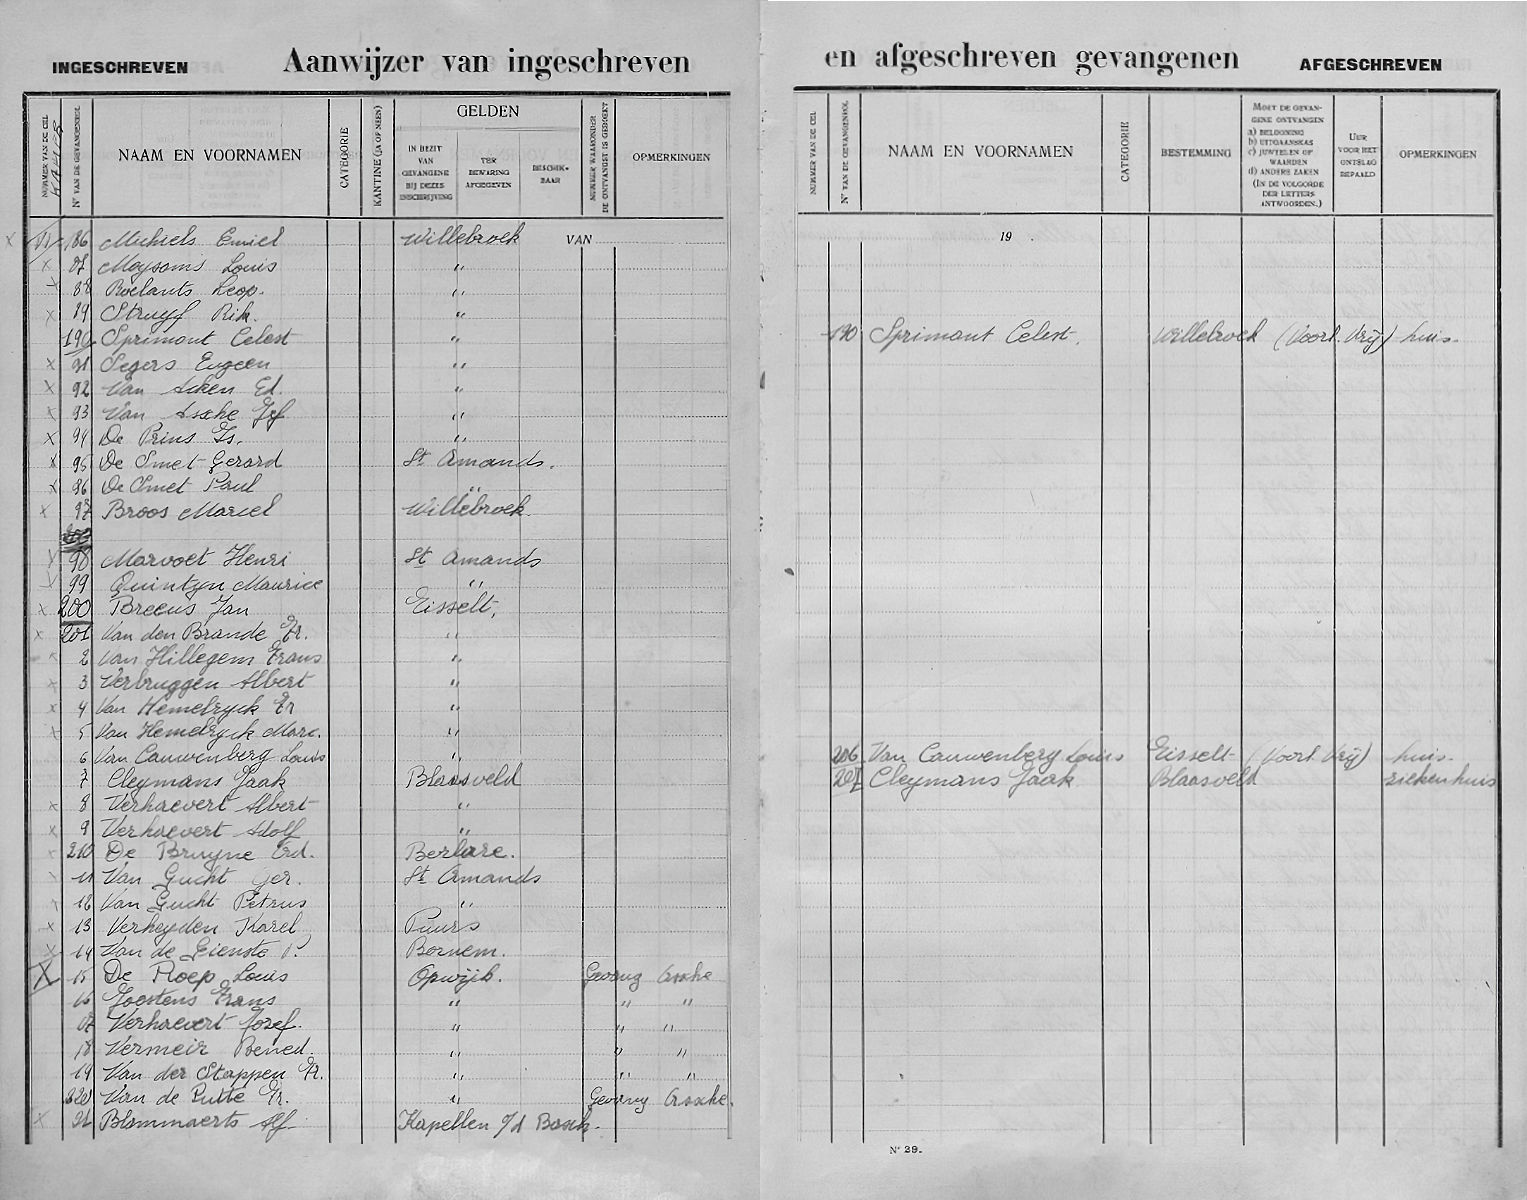 INGESCHREVEN Aanwijzer van ingeschreven
NUMMER VAN DE CEL
N^r VAN DE GEVANGENROL
NAAM EN VOORNAMEN
CATEGORIE
KANTINE (JA OF NEEN)
GELDEN
IN BEZIT VAN GEVANGENE BIJ DEZES INSCHRIJVING
TER BEWARING AFGEGEVEN
BESCHIKBAAR
NUMMER WAARONDER DE ONTVANGST IS GEBOEKT
OPMERKINGEN
186 Michiels Emiel Willebroek VAN
87 Moysoms Louis "
88 Roelants Leop. "
89 Struyf Rik. "
190 Sprimont Celest "
91 Segers Eugeen "
92 Van Acken Ed. "
93 Van Assche Jef "
94 De Prins Is. "
95 De Smet Gerard St Amands.
96 De Smet Paul "
97 Broos Marcel Willebroek.
98 Marvoet Henri St Amands
99 Quintyn Maurice "
200 Breeus Jan Eisselt,
201 Van den Brande Fr. "
2 Van Hillegem Frans "
3 Verbruggen Albert "
4 Van Hemelryck Fr "
5 Van Hemelryck Marc. "
6 Van Cauwenberg Louis "
7 Cleymans Jaak Blaasveld
8 Verhaevert Albert "
9 Verhaevert Adolf "
210 De Bruyne Erd. Berlare.
11 Van Gucht Ger. St Amands
12 Van Gucht Petrus "
13 Verheyden Karel Puurs
14 Van de Eienste P. Bornem.
15 De Roep Louis Opwijk. Gevang Assche
16 Joostens Frans " " "
17 Verhaevert Jozef. " " "
18 Vermeir Bened. " " "
19 Van der Stappen Fr. " " "
220 Van de Putte Fr. " Gevang Assche.
21 Blommaerts Alf Kapellen o/d Bosch.
en afgeschreven gevangenen AFGESCHREVEN
NUMMER VAN DE CEL
N^r VAN DE GEVANGENROL
NAAM EN VOORNAMEN
CATEGORIE
BESTEMMING
MOET DE GEVANGENE ONTVANGEN
a) BELOONING
b) UITGAANSKAS
c) JUWEELEN OF WAARDEN
d) ANDERE ZAKEN
(IN DE VOLGORDE DER LETTERS ANTWOORDEN.)
UUR VOOR HET ONTSLAG BEPAALD
OPMERKINGEN
19
190 Sprimont Celest. Willebroek (Voorl. Vrij) huis.
206 Van Cauwenberg Louis Eisselt (Voorl Vrij) huis.
207 Cleymans Jaak Blaasveld ziekenhuis
N^r 29.